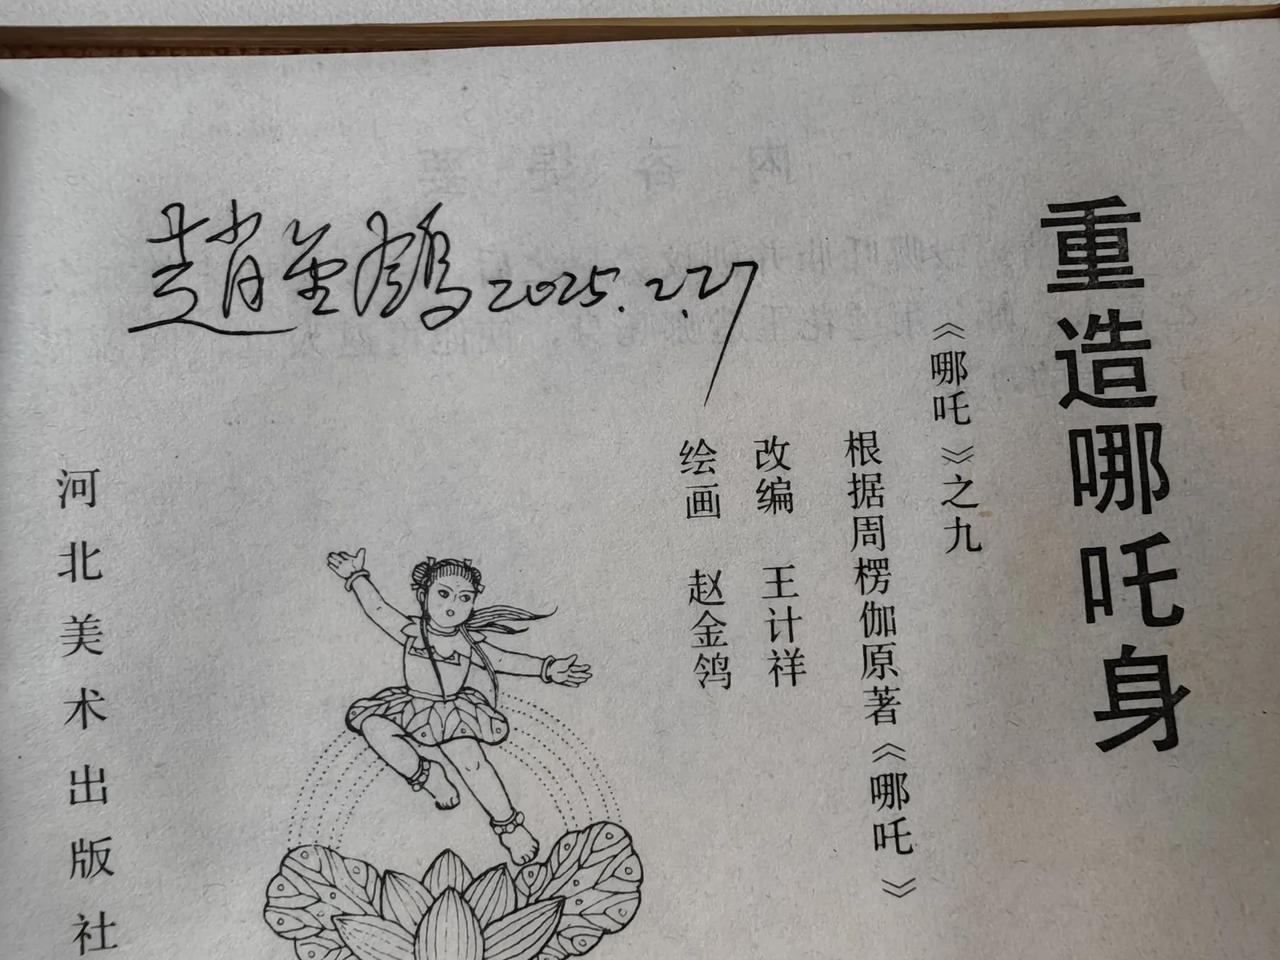 重造哪吒身
《哪吒》之九
根据周楞伽原著《哪吒》
改编 王计祥
绘画 赵金鸽
趙金鴿 2025.2.27
河北美术出版社